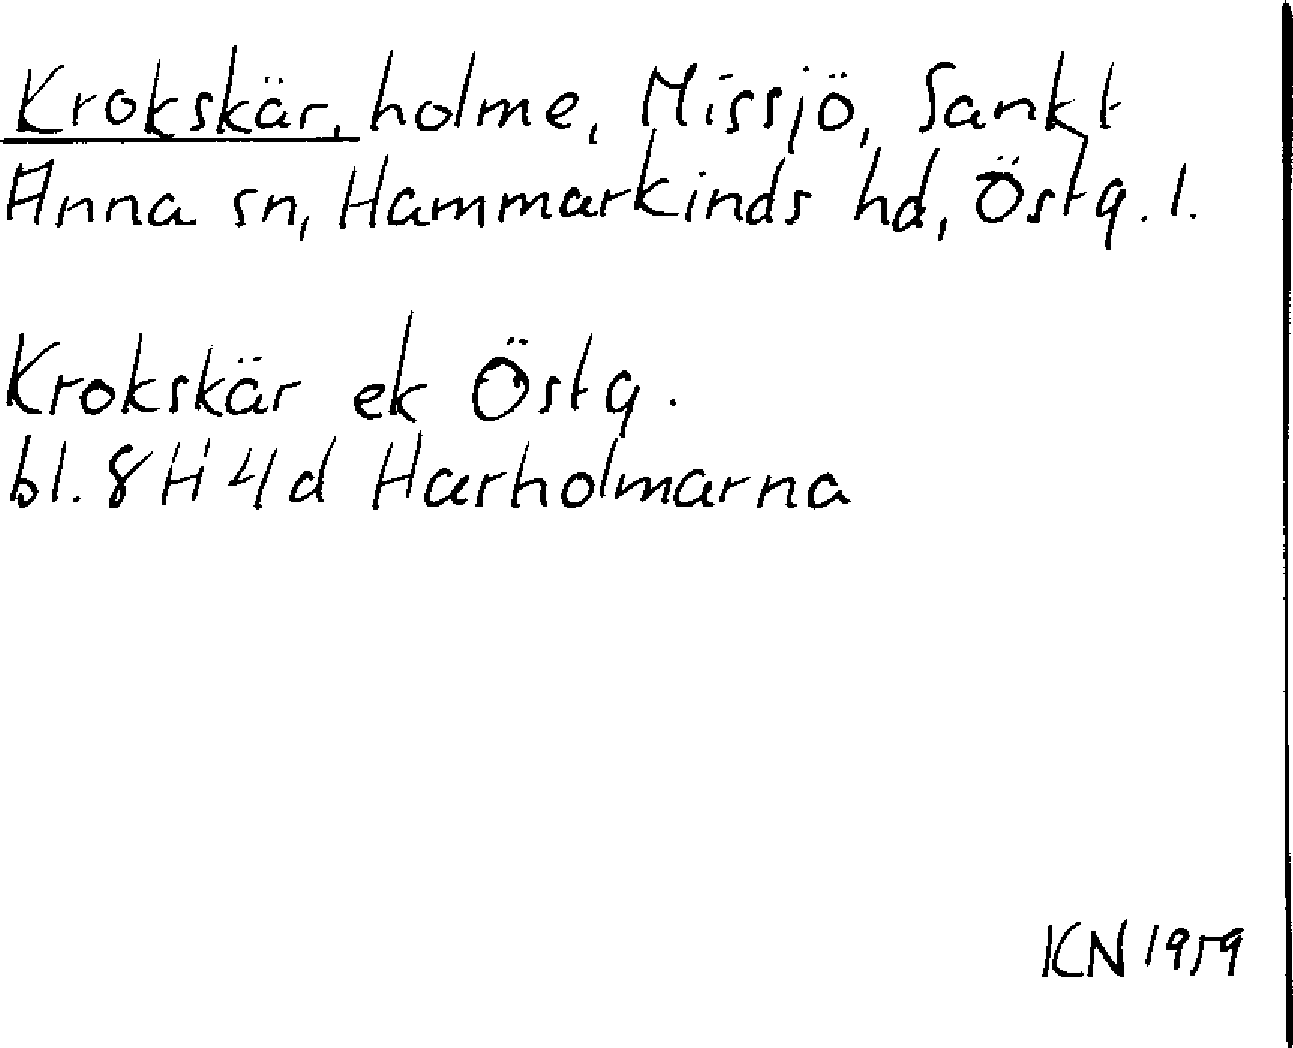 Krokskär, holme, Missjö, Sankt
Anna sn, Hammarkinds hd, Östg. l.
Krokskär ek Östg.
bl. 8H4d Harholmarna
KN 1959